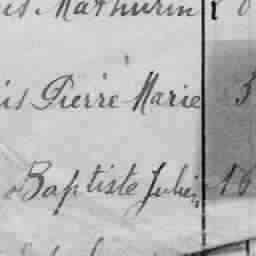 is Mathurin
is Pierre Marie 3
Baptiste Julien 16